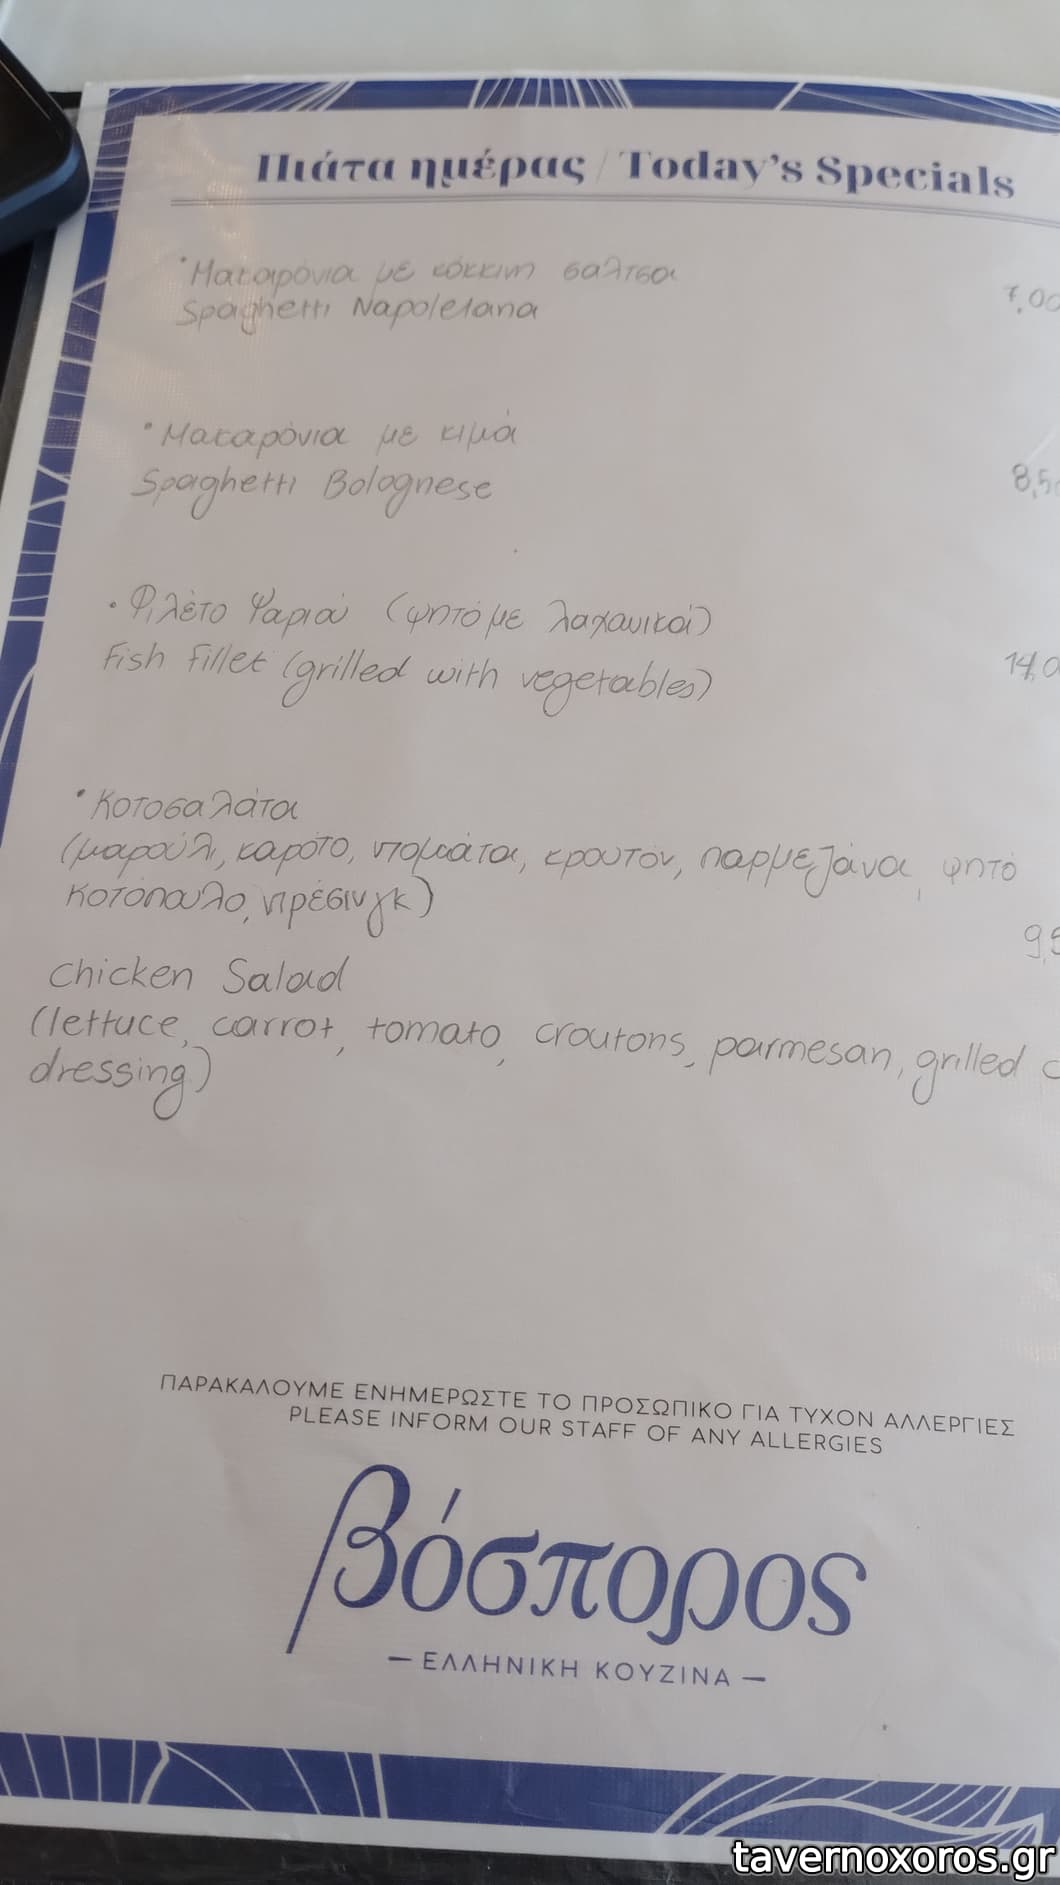 Πιάτα ημέρας / Today's Specials
• Μακαρόνια με κόκκινη σάλτσα
Spaghetti Napoletana
7,00
• Μακαρόνια με κιμά
Spaghetti Bolognese
8,5
• Φιλέτο Ψαριού (ψητό με λαχανικά)
Fish Fillet (grilled with vegetables)
14,0
• Κοτοσαλάτα
(μαρούλι, καρότο, ντομάτα, κρουτόν, παρμεζάνα, ψητό
κοτόπουλο, ντρέσινγκ)
9,5
Chicken Salad
(lettuce, carrot, tomato, croutons, parmesan, grilled c
dressing)
ΠΑΡΑΚΑΛΟΥΜΕ ΕΝΗΜΕΡΩΣΤΕ ΤΟ ΠΡΟΣΩΠΙΚΟ ΓΙΑ ΤΥΧΟΝ ΑΛΛΕΡΓΙΕΣ
PLEASE INFORM OUR STAFF OF ANY ALLERGIES
βόσπορος
— ΕΛΛΗΝΙΚΗ ΚΟΥΖΙΝΑ —
tavernoxoros.gr